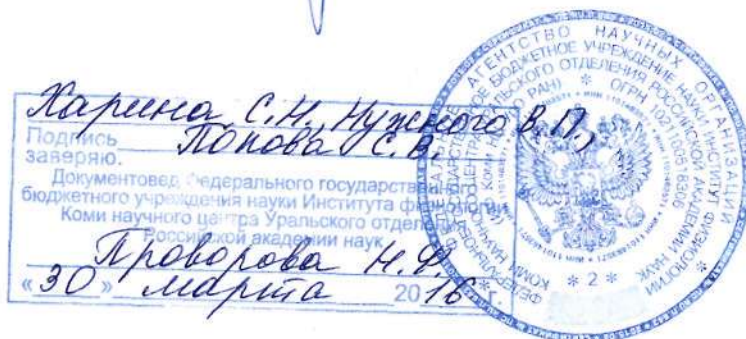 Харина С.Н. Нужного В.П.,
Подпись Попова С.В.
заверяю.
Документовед Федерального государственного
бюджетного учреждения науки Института физиологии
Коми научного центра Уральского отделения
Российской академии наук
Проворова Н.Ф.
«30» марта 2016 г.
АГЕНТСТВО НАУЧНЫХ ОРГАНИЗАЦИЙ
БЮДЖЕТНОЕ УЧРЕЖДЕНИЕ НАУКИ ИНСТИТУТ ФИЗИОЛОГИИ
КОМИ НАУЧНОГО ЦЕНТРА УРАЛЬСКОГО ОТДЕЛЕНИЯ РОССИЙСКОЙ АКАДЕМИИ НАУК
* ОГРН 1021100518306
* 2 *